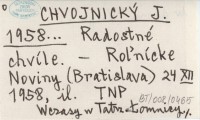 CHVOJNICKÝ J.
1958... Radostné
chvíle. – Roľnícke
Noviny (Bratislava) 24 XII
1958, il. TNP
BT/002/0465
Wczasy w Tatrz. Łomnicy.